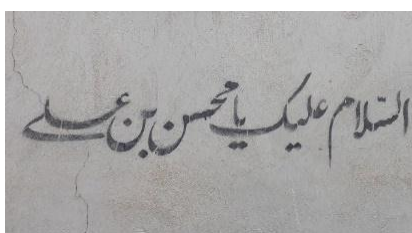 السّلام علیک یا محسن بن علی